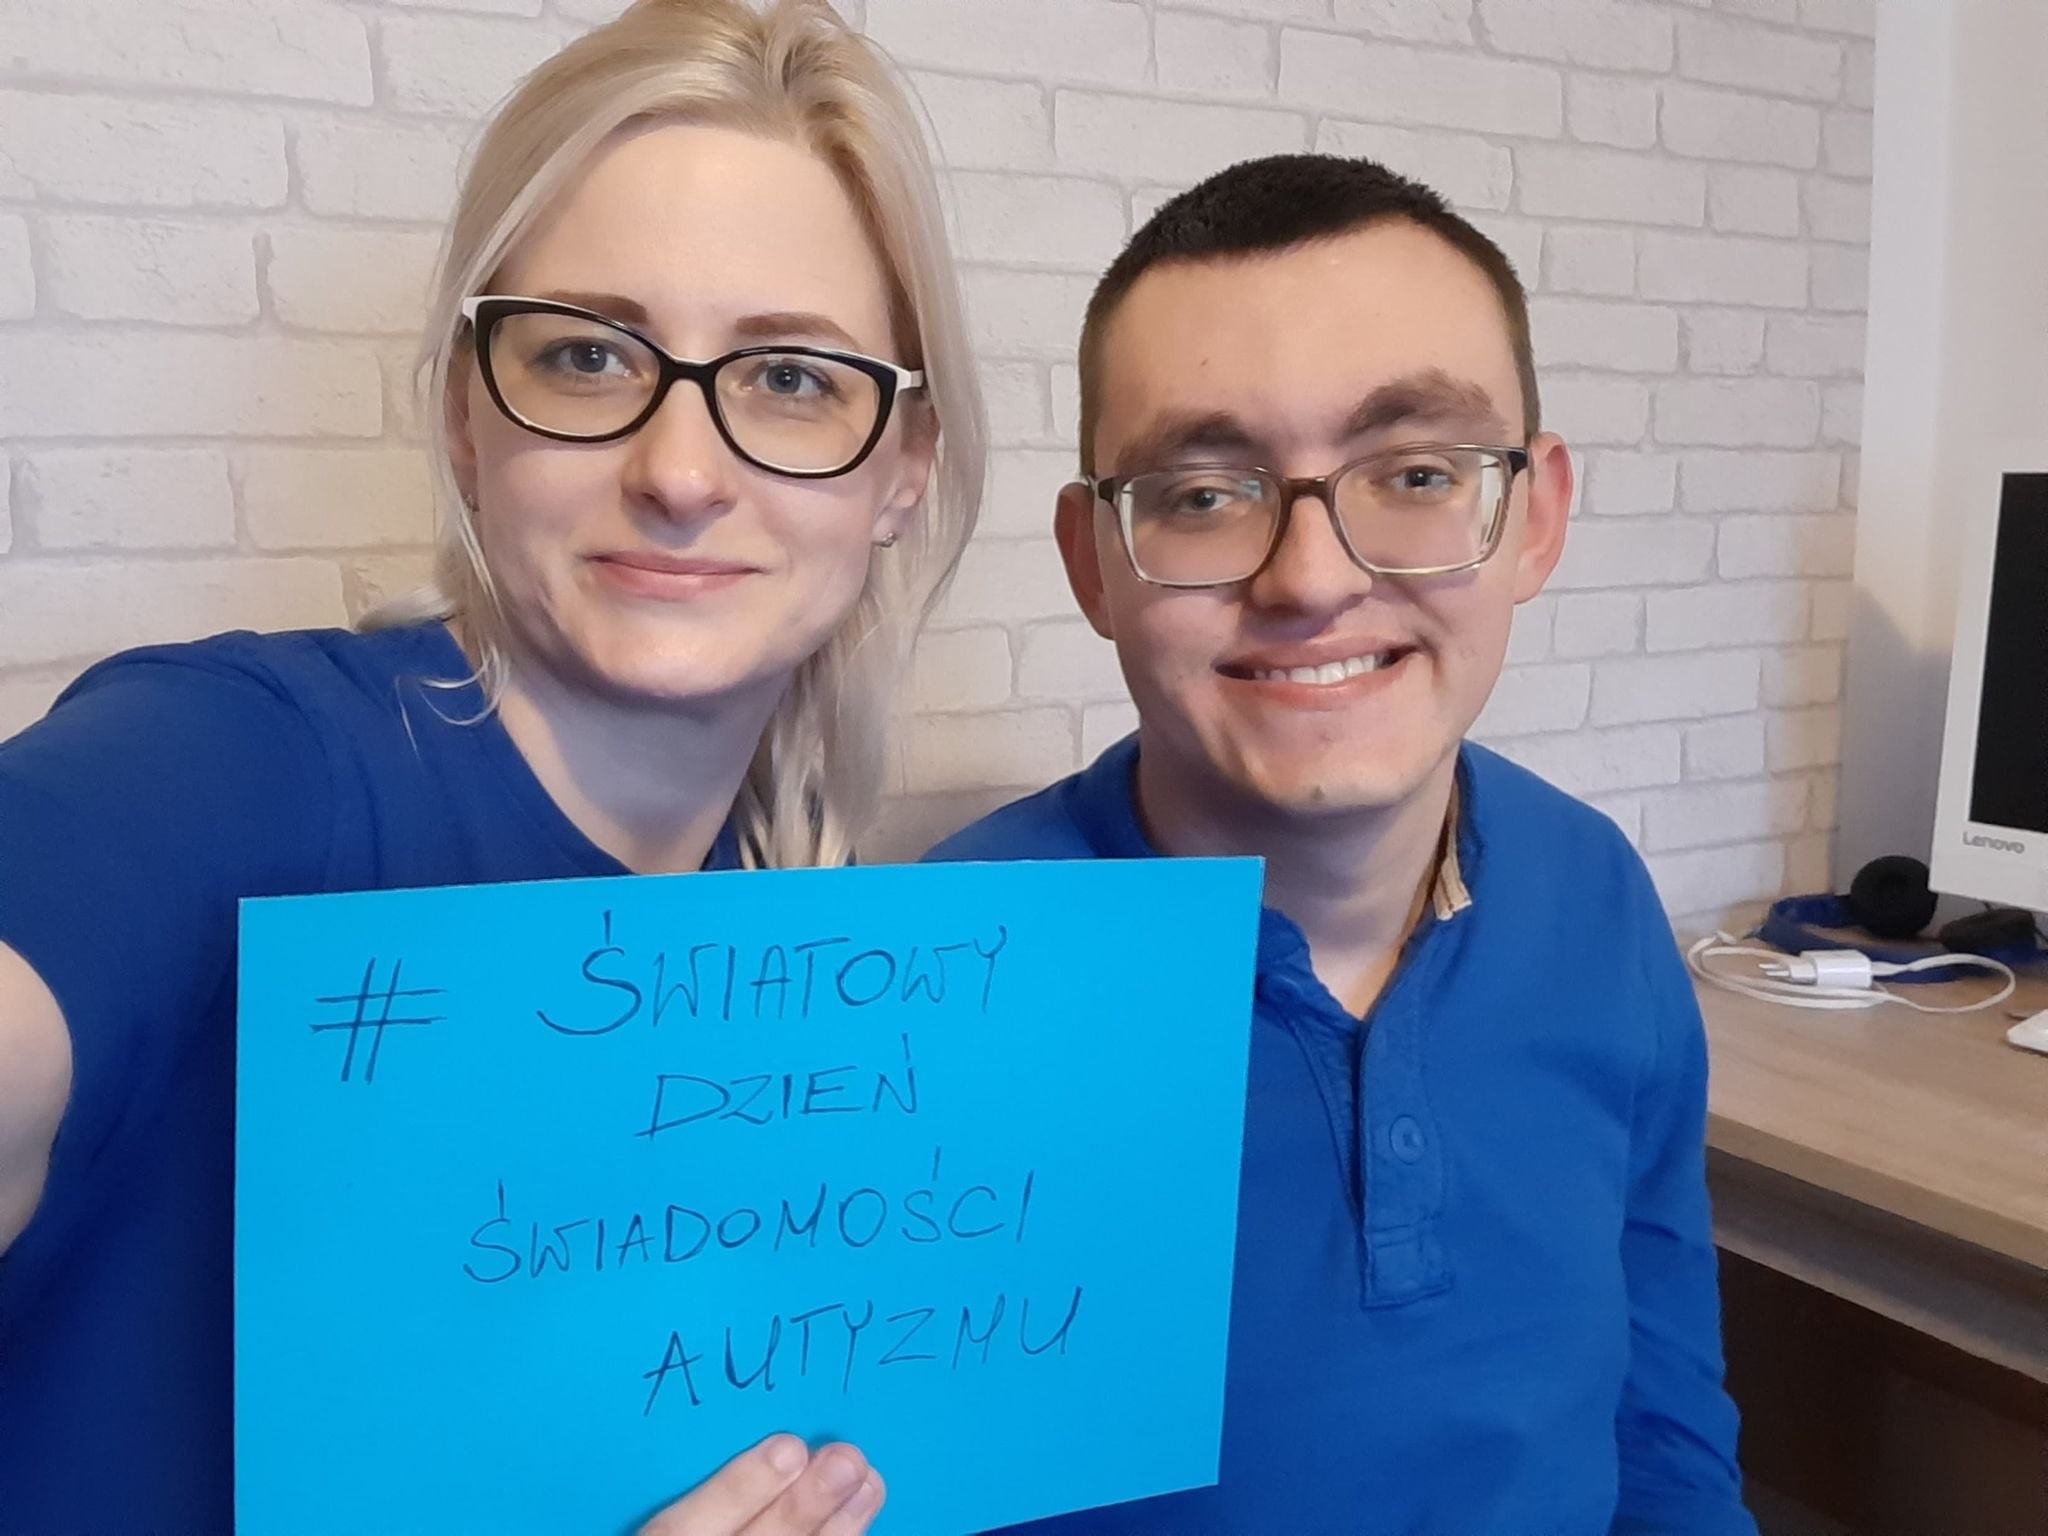 # ŚWIATOWY
DZIEŃ
ŚWIADOMOŚCI
AUTYZMU
Lenovo